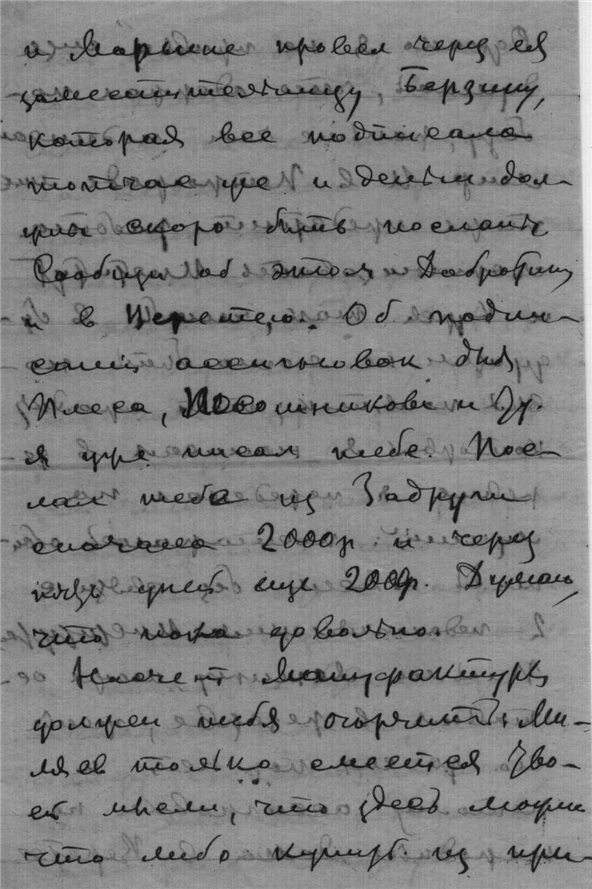 и Марьине провел через ея
заместительницу, Берзину,
которая все подписала
тотчас же и деньги дол-
жны скоро быть посланы
Сообщи об этом
и в . Об подпи-
сании ассигновок для
Плеса, и др.
я уже писал тебе. Пос-
лал тебе из Задруги
сначала 2000р. и через
дней еще 2000р. Думаю,
что пока довольно.
Насчет мануфактуры
должен тебя огорчить: Ми-
ляев только смеется
мысли, что здесь можно
что либо купить из при-